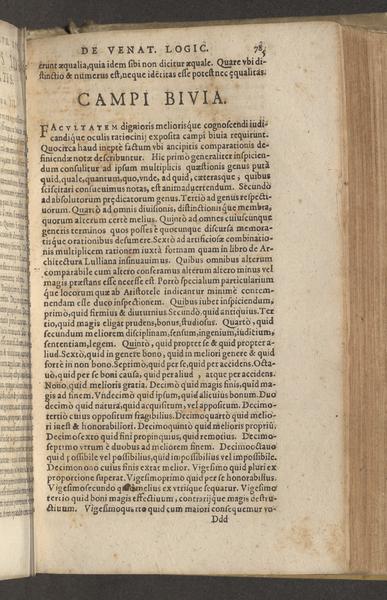 DE VENAT. LOGIC. 785
erunt æqualia, quia idem sibi non dicitur æquale. Quare vbi di-
stinctio & numerus est, neque idẽtitas esse potest nec ęqualitas.
CAMPI BIVIA.
FACVLTATEM dignioris meliorisque cognoscendi iudi-
candique oculis ratiocinij exposita campi biuia requirunt.
Quocirca haud ineptè factum vbi ancipitis comparationis de-
finiendæ notæ describuntur. Hic primò generaliter inspicien-
dum consulitur ad ipsum multiplicis quæstionis genus putà
quid, quale, quantum, quo, vnde, ad quid, cæteraque, quibus
sciscitari consueuimus notas, est animaduertendum. Secundò
ad absolutorum prędicatorum genus. Tertiò ad genus respecti-
uorum. Quartò ad omnis diuisionis, distinctionisque membra,
quorum alterum certè melius. Quintò ad omnes cuiuscunque
generis terminos quos posses è quocunque discursa memora-
tisque orationibus desumere. Sextò ad artificiosæ combinatio-
nis multiplicem rationem iuxtà formam quam in libro de Ar-
chitectura Lulliana insinuauimus. Quibus omnibus alterum
comparabile cum altero conferamus alterum altero minus vel
magis præstans esse necesse est. Porrò specialium particularium
que locorum quæ ab Aristotele indicantur minimè contem-
nendam elle duco inspectionem. Quibus iubet inspiciendum,
primò, quid firmius & diuturnius. Secundò. quid antiquius. Ter
tio, quid magis eligat prudens, bonus, studiosus. Quartò, quid
secundum meliorem disciplinam, sensum, ingenium, iudicium,
sententiam, legem. Quintò, quid propter se & quid propter a-
liud. Sextò, quid in genere bono, quid in meliori genere & quid
fortè in non bono. Septimò, quid per se, quid per accidens. Octa-
uò, quid per se boni causa, quid per aliud, atque per accidens.
Nono, quid melioris gratia. Decimò quid magis finis, quid ma-
gis ad finem. Vndecimò quid ipsum, quid alicuius bonum. Duo
decimò quid natura, quid acquisitum, vel appositum. Decimo-
tertiò cuius oppositum fragibilius. Decimoquartò quid melio-
ri inest & honorabiliori. Decimoquintò quid melioris propriũ.
Decimosexto quid fini propinquius, quid remotius. Decimo-
septimo vtrum è duobus ad meliorem finem. Decimooctauo
quid possibile vel possibilius, quid impossibilius vel impossibile.
Decimonono cuius finis extat melior. Vigesimo quid pluri ex
proportione superat. Vigesimoprimò quid per se honorabilius.
Vigesimosecundo melius ex vtrisque sequatur. Vigesimo
tertio quid boni magis effectiuum, contrarijque magis destru-
ctiuum. Vigesimoquarto quid cum maiori consequemur vo-
Ddd